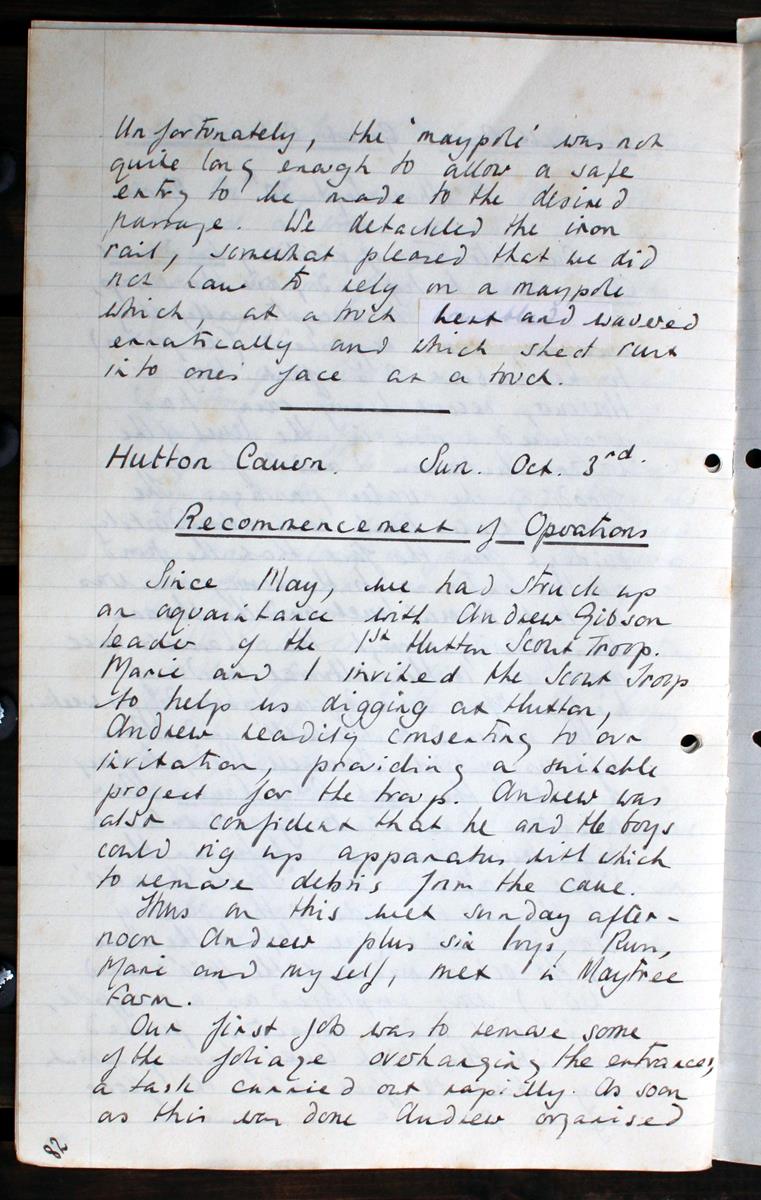 Unfortunately, the 'maypole' was not
quite long enough to allow a safe
entry to be made to the desired
passage. We detackled the iron
rail, somewhat pleased that we did
not have to rely on a maypole
which at a touch bent and wavered
erratically and which shed rust
into ones face at a touch.
Hutton Cavern. Sun. Oct. 3rd.
Recommencement of Operations
Since May, we had struck up
an aquaintance with Andrew Gibson
leader of the 1st Hutton Scout Troop.
Marie and I invited the Scout Troop
to help us digging at Hutton,
Andrew readily consenting to our
invitation, providing a suitable
project for the troop. Andrew was
also confident that he and the boys
could rig up apparatus with which
to remove debris form the cave.
Thus on this wet sunday after-
noon Andrew plus six boys,
Marie and myself, met in Maytree
Farm.
Our first job was to remove some
of the foliage overhanging the entrances,
a task carried out rapidly. As soon
as this was done Andrew organised
82